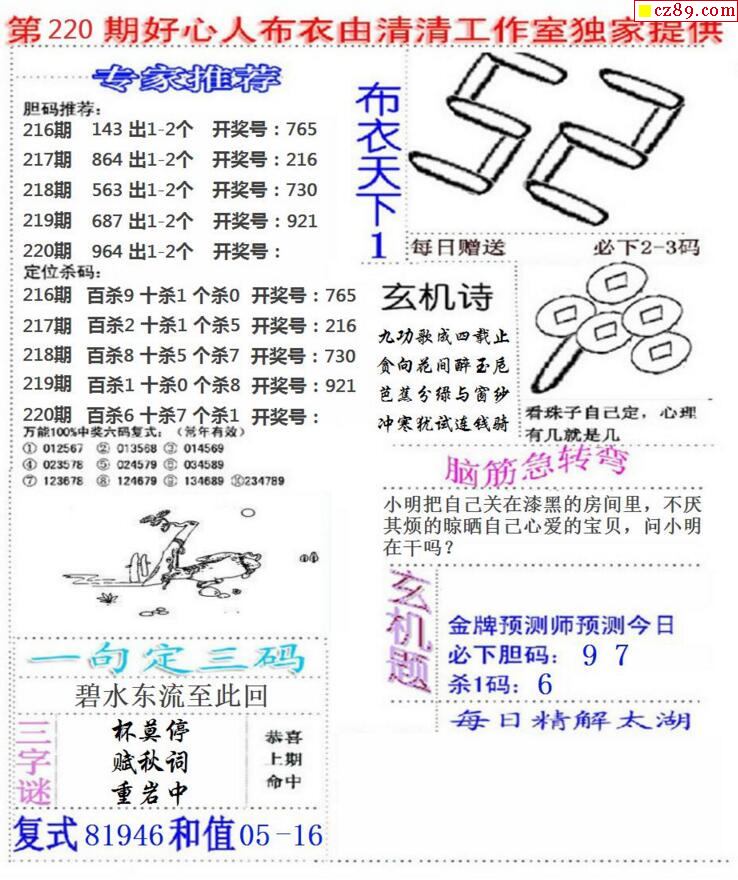 cz89.com
第 220 期好心人布衣由清清工作室独家提供
专家推荐
胆码推荐:
216期 143 出1-2个 开奖号：765
217期 864 出1-2个 开奖号：216
218期 563 出1-2个 开奖号：730
219期 687 出1-2个 开奖号：921
220期 964 出1-2个 开奖号：
定位杀码:
216期 百杀9 十杀1 个杀0 开奖号：765
217期 百杀2 十杀1 个杀5 开奖号：216
218期 百杀8 十杀5 个杀7 开奖号：730
219期 百杀1 十杀0 个杀8 开奖号：921
220期 百杀6 十杀7 个杀1 开奖号：
万能100%中奖六码复式: （常年有效）
① 012567 ② 013568 ③ 014569
④ 023578 ⑤ 024579 ⑥ 034589
⑦ 123678 ⑧ 124679 ⑨ 134689 ⑩234789
一句定三码
碧水东流至此回
三字谜
杯莫停
赋秋词
重岩中
恭喜
上期
命中
复式 81946 和值 05-16
布衣天下1
每日赠送 必下2-3码
玄机诗
九功歌成四载止
贪向花间醉玉卮
芭蕉分绿与窗纱
冲寒犹试连钱骑
看珠子自己定，心理
有几就是几
脑筋急转弯
小明把自己关在漆黑的房间里，不厌
其烦的晾晒自己心爱的宝贝，问小明
在干吗？
玄机题
金牌预测师预测今日
必下胆码： 9 7
杀1码：6
每日精解太湖